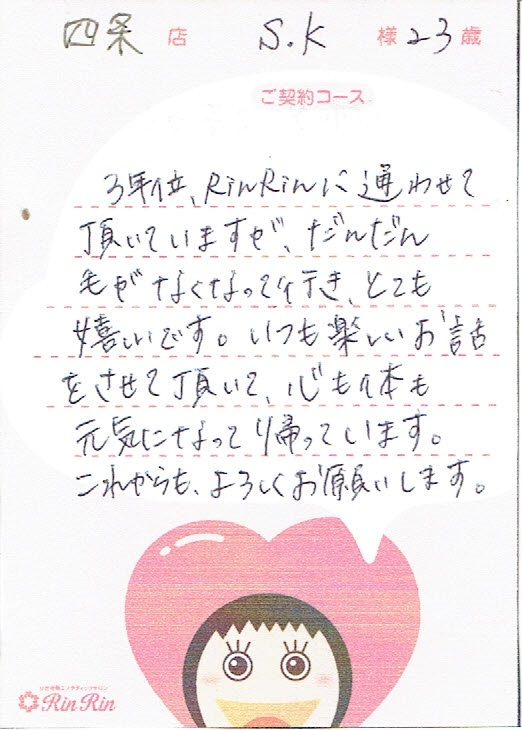 四条 店 S.K 様 23 歳
ご契約コース
3年位、RinRinに通わせて
頂いていますが、だんだん
毛がなくなって行き、とても
嬉しいです。いつも楽しいお話
をさせて頂いて、心も体も
元気になって帰っています。
これからも、よろしくお願いします。
Rin Rin